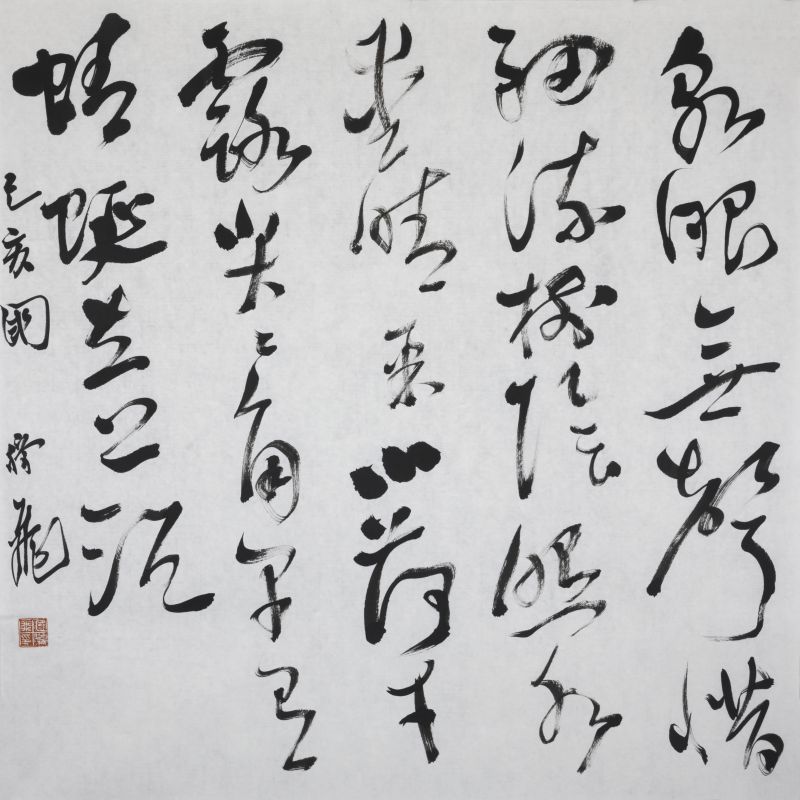 泉眼無聲惜
細流樹陰照水
愛晴柔小荷才
露尖〻角早有
蜻蜓立上頭
己亥